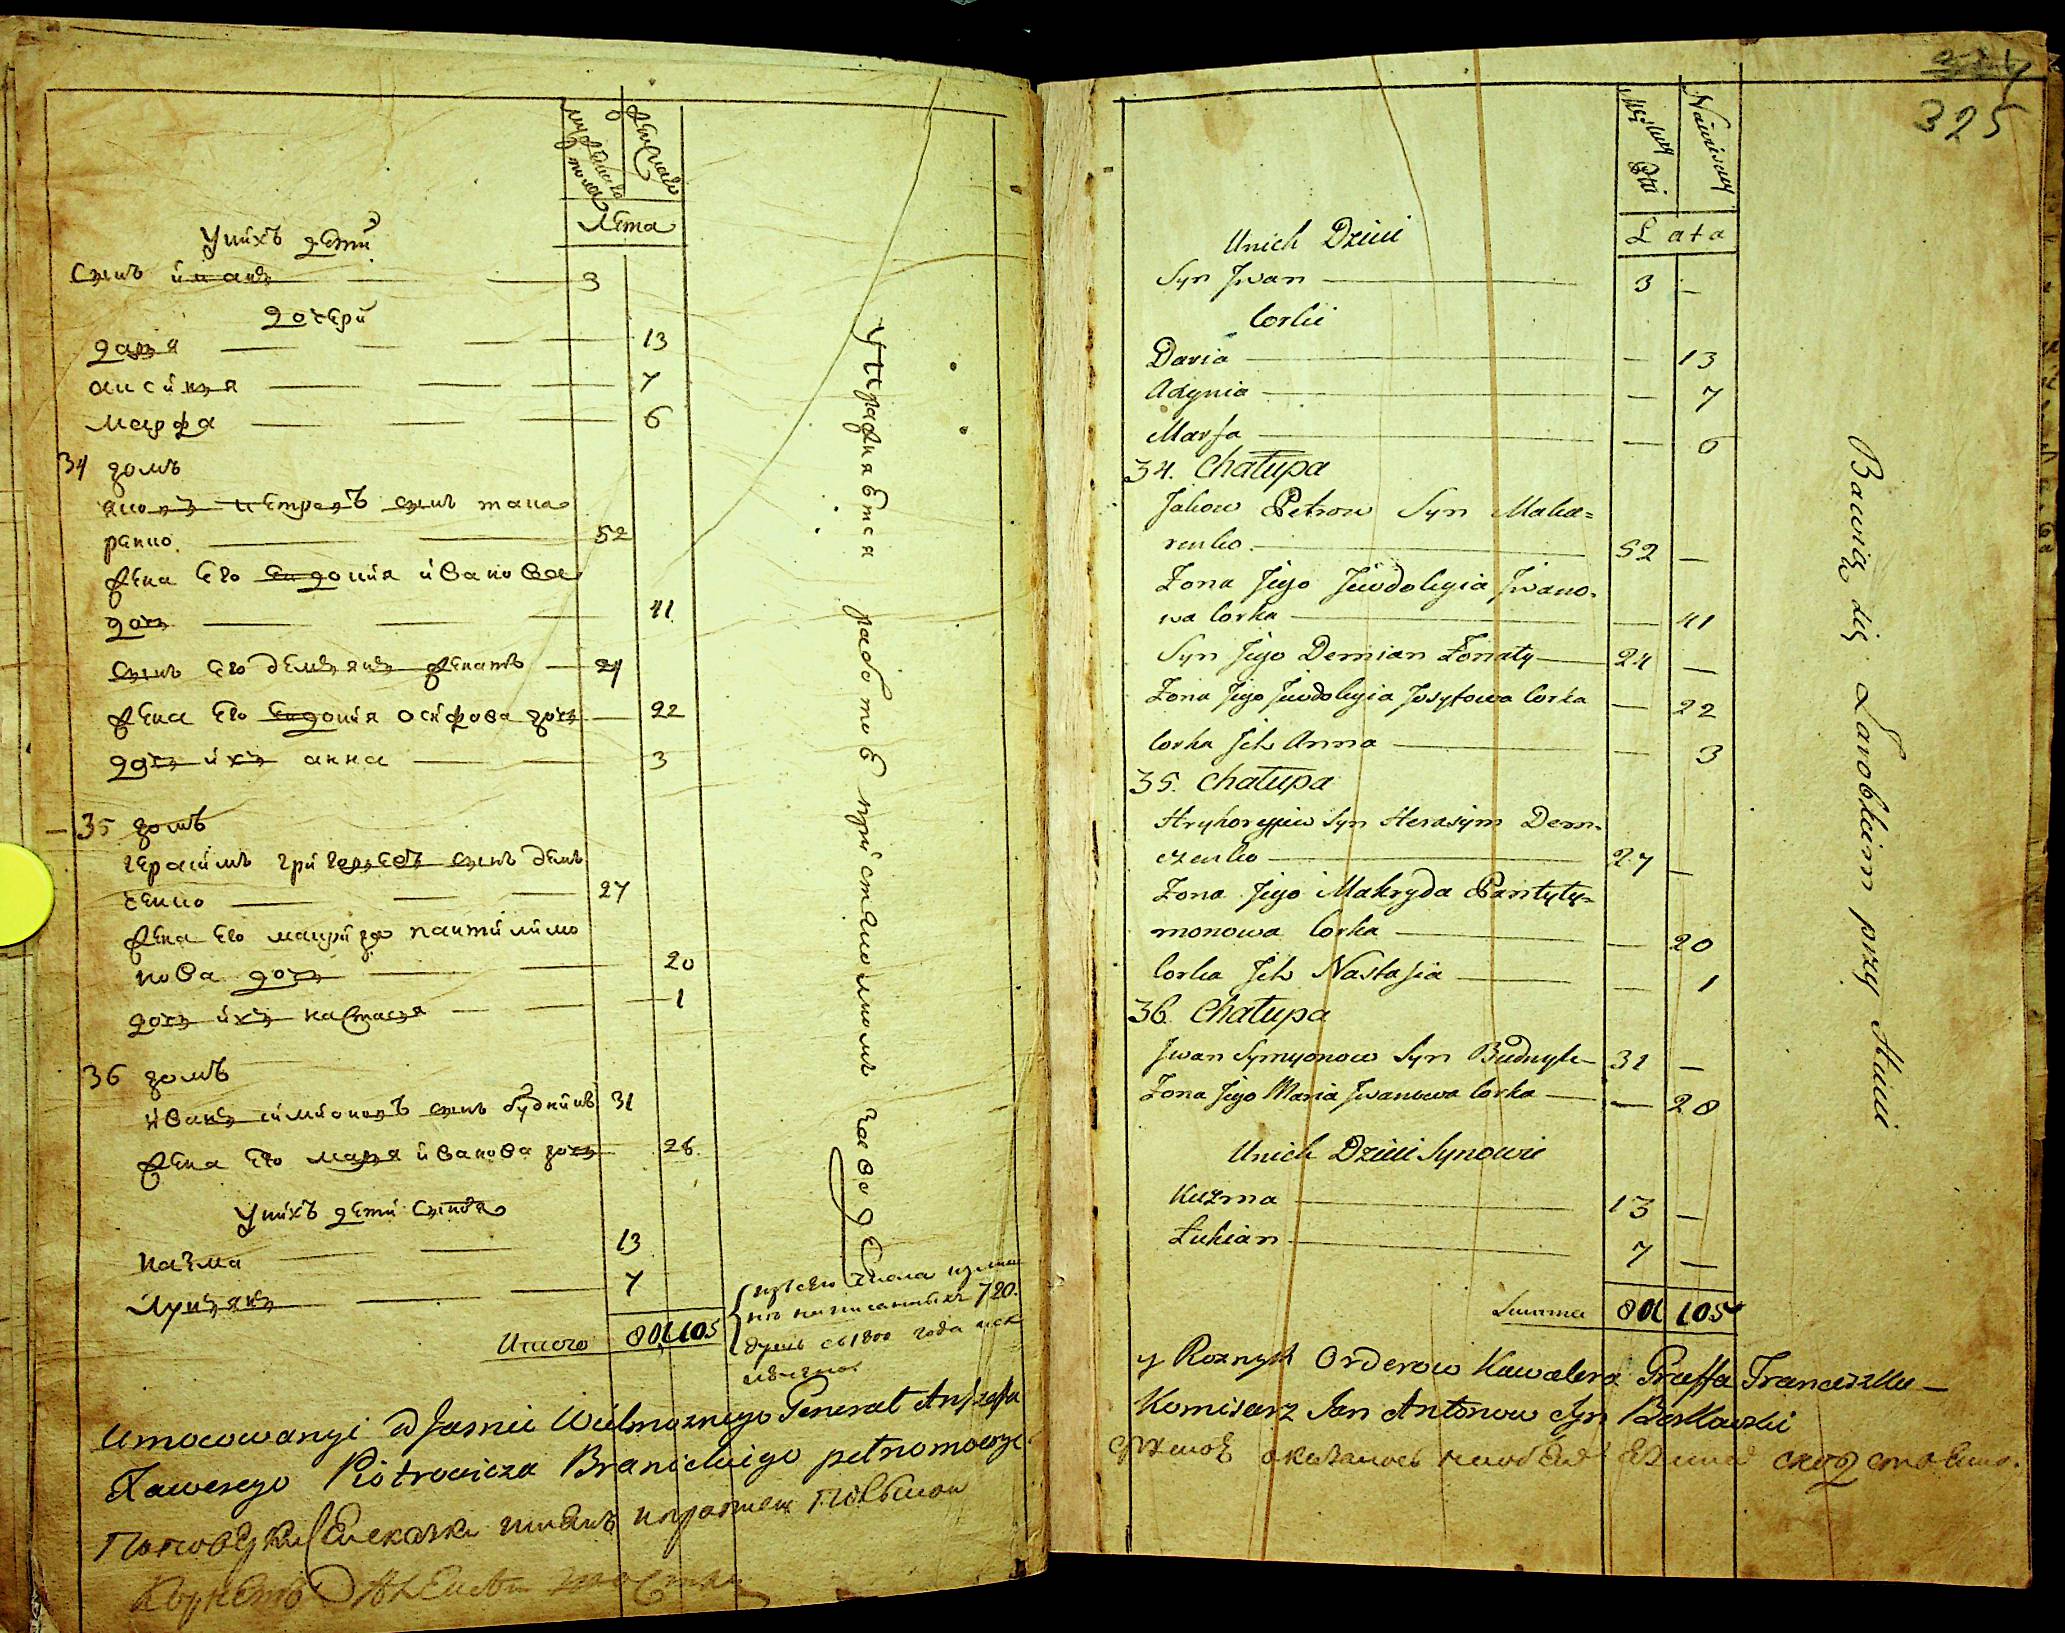 Лѣта
У нихъ дѣти
Сынъ иванъ 3
дочери
дарья 13
аксинья 7
марфа 6
34 домъ
яковъ петровъ сынъ мака
ренко 52
жена его евдокия иванова
дочь 41
сынъ его демьянъ женатъ 24
жена его евдокия осипова дочь 22
дочь ихъ анна 3
35 домъ
герасимъ григорьевъ сынъ дем
ченко 27
жена его макрида пантилимо
нова дочь 20
дочь ихъ настасья 1
36 домъ
иванъ симионовъ сынъ будникъ 31
жена его марья иванова дочь 28
У нихъ дети сыновя
казма 13
лукьянъ 7
Итого 801 105
упражняются работою при стеколномъ заводе
720.
с 1800 года
Umocowanyi od Jasnie Wielmoznego General Anszefa
Xawerego Piotrowicza Branickiego pełnomoczy
325
Lata
Unich Dzieci
Syn Jwan 3 —
Corki
Daria — 13
Axynia — 7
Marfa — 6
34. Chałupa
Jakow Petrow Syn Maka=
renko. 52 —
Żona Jego Jewdokyia Jwano=
wa Corka — 41
Syn Jego Demian Żonaty 24 —
Żona Jego Jewdokyia Josyfowa Corka — 22
Corka Jch Anna — 3
35. Chałupa
Hryhoryjew Syn Herasym Dem=
czenko 27 —
Żona Jego Makryda Pantyły=
monowa Corka — 20
Corka Jch Nastasia — 1
36. Chałupa
Jwan Symyonow Syn Budnyk 31 —
Żona Jego Maria Jwanowa Corka — 28
Unich Dzieci Synowie
Kuzma 13 —
Łukian 7 —
Summa 801 105
Bawią się Zarobkiem przy Hucie
y Roznych Orderow Kawalera Graffa Franciszka
Komisarz Jan Antonow Syn